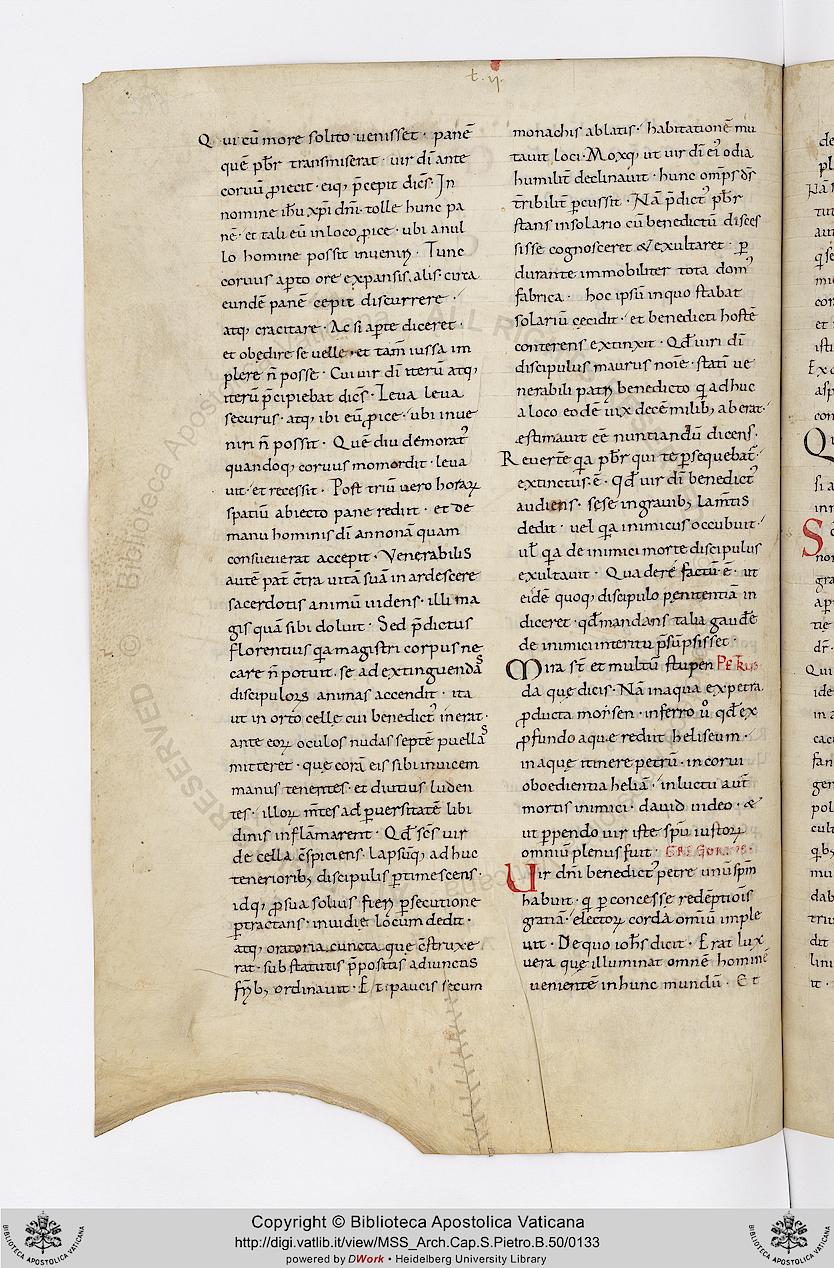 t. ij.
Qui cū more solito venisset · panē
quē p̄br transmiserat · uir dī ante
corvū proiecit · eiq; p̄cepit dicēs · In
nomine ihu xp̄i dn̄i · tolle hunc pa
nē · et tali eū in loco proice · ubi a nul
lo homine possit inveniri · Tunc
corvus apto ore expansis alis · circa
eundē panē cepit discurrere ·
atq; cracitare · Ac si apte diceret ·
et obedire se velle · et tam̄ iussa im
plere n̄ posse · Cui vir dī iterū atq;
iterū p̄cipiebat dicēs · Leva leva
securus · atq; ibi eū proice · ubi inve
niri n̄ possit · Quē diu demorat᾽
quandoq; corvus momordit · leva
vit · et recessit · Post triū vero horaꝝ
spatiū abiecto pane rediit · et de
manu hominis dī annonā quam
consueverat accepit · Venerabilis
autē pat̄ c̄tra vitā suā inardescere
sacerdotis animū videns · illi ma
gis quā sibi doluit · Sed p̄dictus
florentius qa magistri corpus ne
care n̄ potuit · se ad extinguendas
discipulorū animas accendit · ita
ut in orto celle cui benedict᾽ inerat ·
ante eoꝝ oculos nudas septē puellas
mitteret · que corā eis sibi invicem
manus tenentes · et diutius luden
tes · illoꝝ m̄tes ad pversitatē libi
dinis inflāmarent · Qd̄ sc̄s vir
de cella c̄spiciens · lapsūq; adhuc
tenerioribꝫ discipulis ptimescens ·
idq; pro sua solius fieri psecutione
ptractans · invidie locum dedit ·
atq; oratoria cuncta que c̄struxe
rat · sub statutis p̄positis adiunctis
fr̄ibꝫ ordinavit · Et paucis secum
monachis ablatis · habitationē mu
tavit loci · Moxq; ut vir dī ei᾽ odia
humilit̄ declinavit · hunc omp̄s d̄s
t̄ribilit̄ pcussit · Nā p̄dict᾽ p̄br
stans in solario cū benedictū disces
sisse cognosceret & exultaret · p
durante immobiliter tota dom᾽
fabrica · hoc ipsū in quo stabat
solariū cecidit · et benedicti hostē
conterens extinxit · Qd̄ viri dī
discipulus maurus noīe · statī ve
nerabili patri benedicto q adhuc
a loco eodē vix decē milibꝫ aberat ·
estimavit ēē nuntiandū dicens ·
Revertē qa p̄br qui te psequebat᾽
extinctus ē · qd̄ vir dī benedict᾽
audiens · sese in gravibꝫ lam̄tis
dedit · vel qa inimicus occubuit ·
vł qa de inimici morte discipulus
exultavit · Qua de rē factū ē · ut
eidē quoq; discipulo penitentiā in
diceret · qd̄ mandans talia gaudē
de inimici interitu p̄sūpsisset ·
Mira st̄ et multū stupen PETRUS
da que dicis · Nā in aqua ex petra
producta moysen · in ferro v̊ qd̄ ex
profundo aque rediit heliseum ·
in aque itinere petrū · in corvi
oboedientia heliā · in luctu aut̄
mortis inimici · david video · &
ut ppendo vir iste spū iustoꝝ
omniū plenus fuit · GREGORIUS ·
Vir dn̄i benedict᾽ petre unū spm̄
habuit · q p concesse redēptiōis
gratiā · electoꝝ corda om̄iū imple
vit · De quo ioh̄s dicit · Erat lux
vera que illuminat omnē hominē
venientē in hunc mundū · Et
Copyright © Biblioteca Apostolica Vaticana
http://digi.vatlib.it/view/MSS_Arch.Cap.S.Pietro.B.50/0133
powered by DWork • Heidelberg University Library